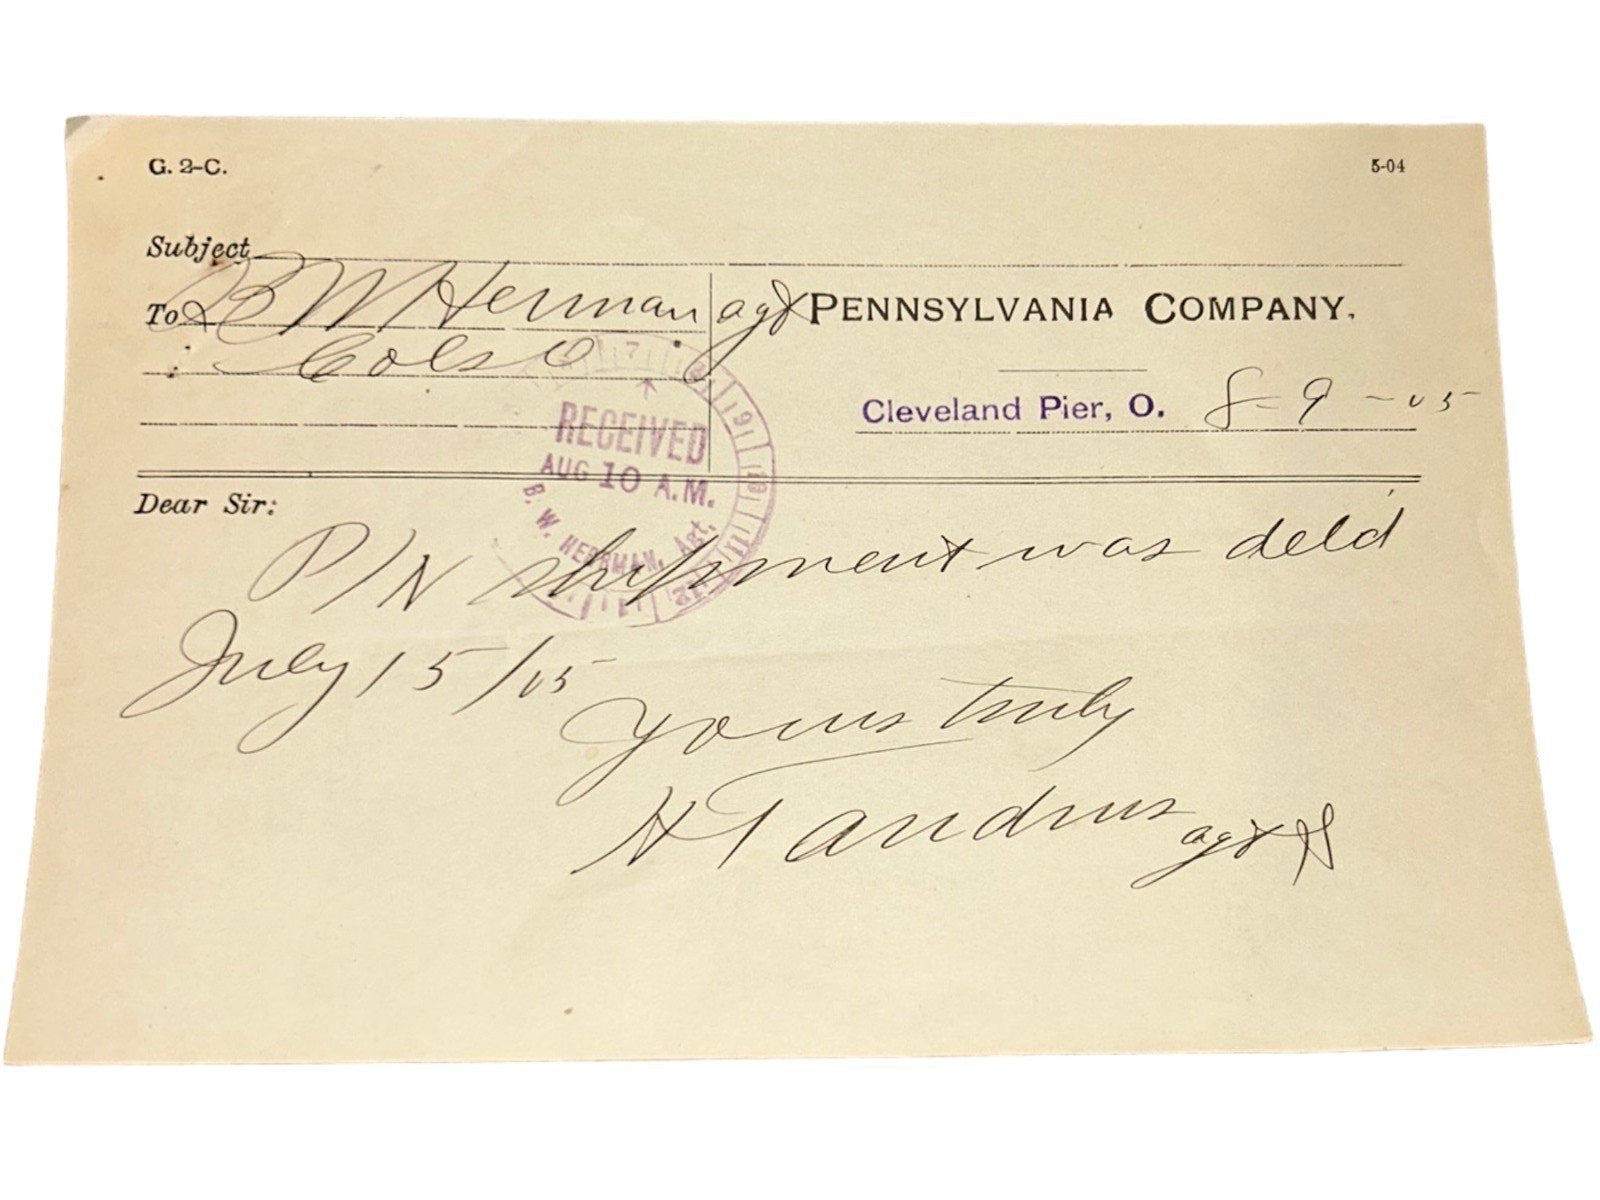 G. 2-C. 5-04
Subject
To B W Herman agt PENNSYLVANIA COMPANY.
Cols O
Cleveland Pier, O. 8-9-05
RECEIVED
AUG 10 A.M.
B. W. HERRMAN, Agt.
Dear Sir:
P/N shipment was deld
July 15/05
Yours truly
H T andrus agt